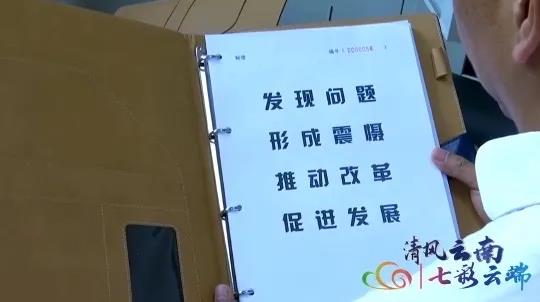 发现问题
形成震慑
推动改革
促进发展
清风云南
七彩云端